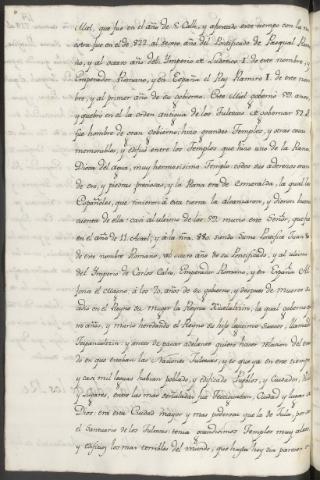 Mitl, que fue en el año de 5 Calli, y ajustado este tiempo con la nu
estra fue en el de 822 al tercer año del Pontificado de Pasqual Roma
no, y al octavo año del Imperio de Ludovico 1.º de este nombre,
Emperador Romano, y en España el Rey Ramiro 1.º de este nom
bre, y al primer año de su gobierno. Este Mitl gobernó 59. años,
y quebró en el la orden antigua de los Tultecas de gobernar 52. 
fue hombre de gran gobierno; hizo grandes Templos, y otras cosas
memorables, y edificó entre los Templos que hizo uno de la Rana,
Diosa del agua, muy hermosisimo Templo todos sus aderezos eran
de oro, y piedras preciosas, y la Rana era de Esmeralda, la qual los
Españoles, que vinieron à esta tierra la alcanzaron, y dieron buena
cuenta de ella: casi al ultimo de los 59. murió este Señor, que fue
en el año de 11. Acatl, y à la nra. 880. siendo Sumo Pontifice Juan 8.
de este nombre Romano, al octavo año de su Pontificado, y al ultimo
del Imperio de Carlos Calvo Emperador Romano, y en España Al
fonso el Magno, à los 20. años de su gobierno, y despues de muerto
dió en el Reyno su muger la Reyna Xiuhtlaltzin, la qual gobernó qua
tro años, y murió heredando el Reyno su hijo legitimo sucesor, llamado
Tecpancaltzin: y antes de pasar adelante quiero hacer relacion del esta
do en que estaban las Naciones Tultecas, y es que ya en este tiempo
y casi mil leguas habian poblado, y edificado Pueblos, y Ciudades, Villas,
y Lugares, entre las mas señaladas fue Teotihuacan, Ciudad y lugar de
Dios: era esta Ciudad mayor y mas poderosa que la de Tula, por ser
el Santuario de los Tultecas: tenia grandisimos Templos muy altos,
y edificios los mas terribles del mundo, que hasta hoy dia parecen